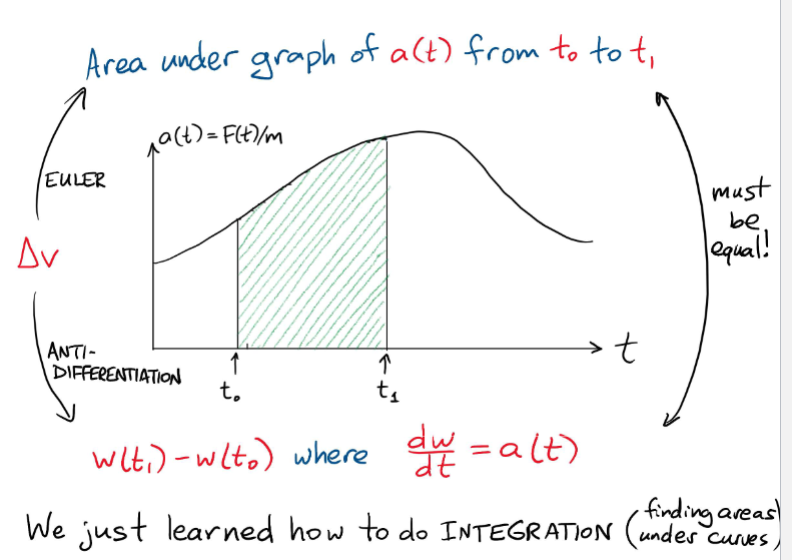 Area under graph of a(t) from t₀ to t₁
a(t) = F(t)/m
EULER
must
be
equal!
Δv
t
ANTI-
DIFFERENTIATION
t₀
t₁
w(t₁) - w(t₀) where dw/dt = a(t)
We just learned how to do INTEGRATION (finding areas
under curves)